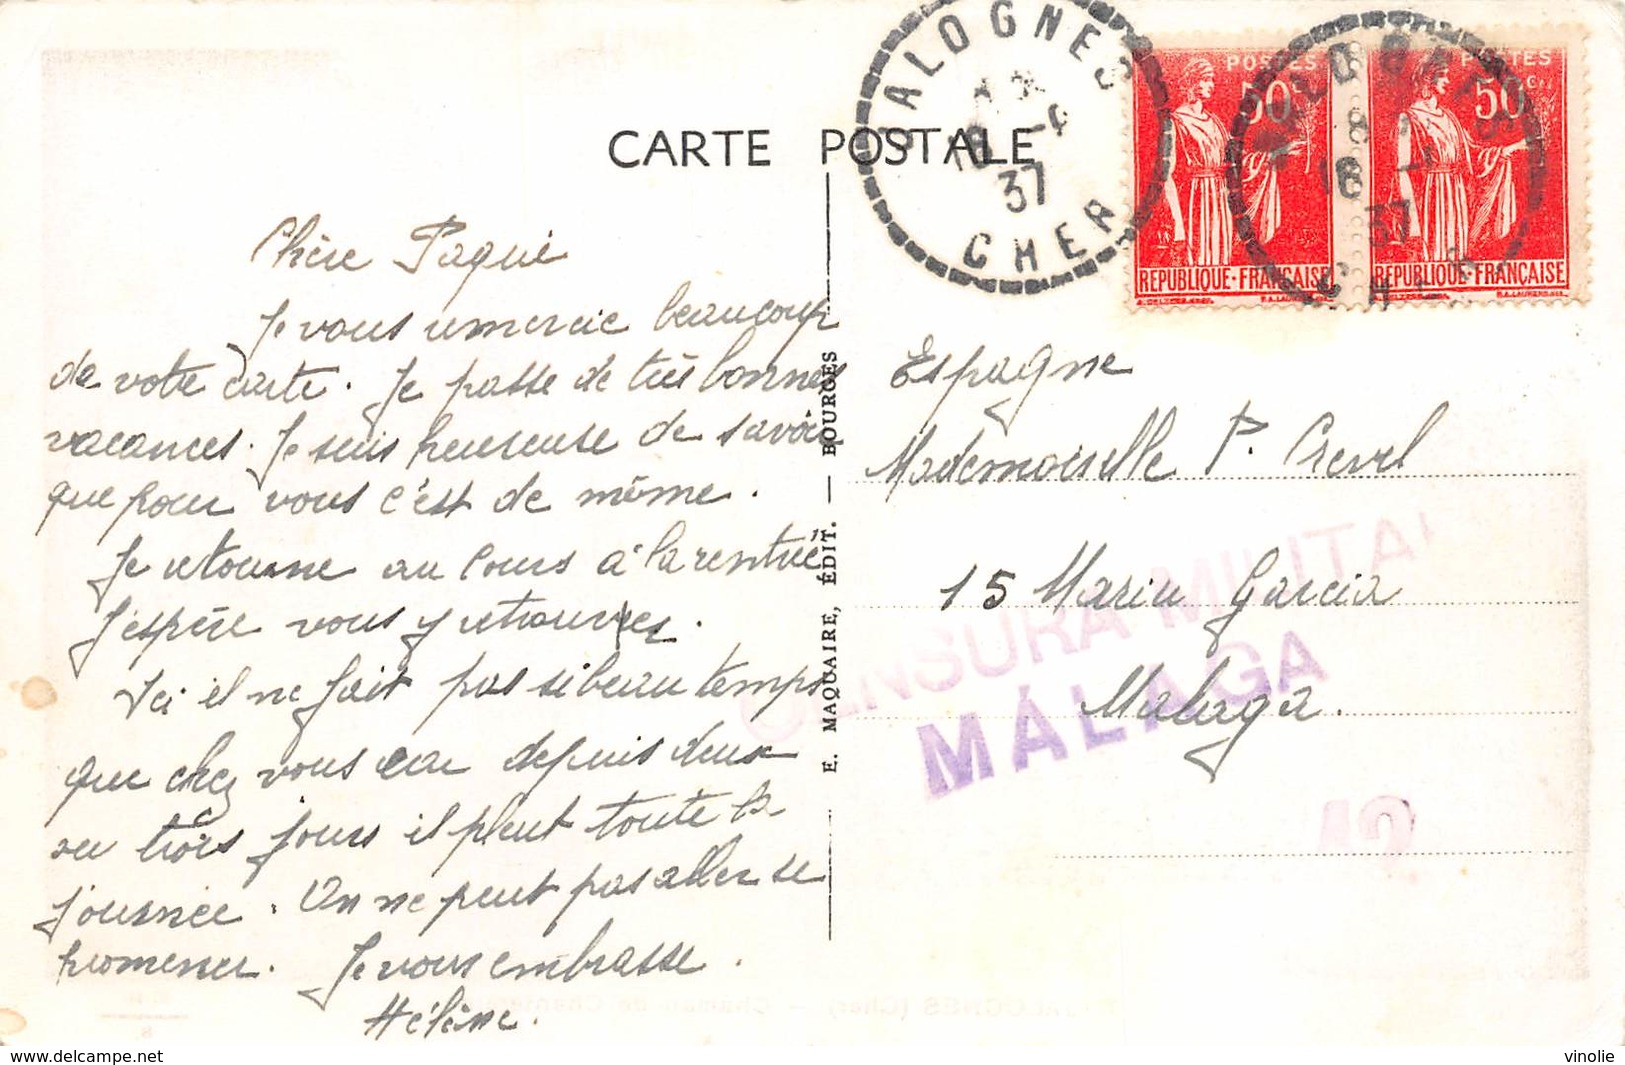 CARTE POSTALE
Chère Paquie
Je vous remercie beaucoup
de votre carte. Je passe de très bonnes
vacances. Je suis heureuse de savoir
que pour vous c'est de même.
Je retourne au cours à la rentrée
J'espère vous y retrouver.
Ici il ne fait pas si beau temps
que chez vous car depuis deux
ou trois jours il pleut toute la
journée. On ne peut pas aller se
promener. Je vous embrasse.
Hélène.
E. MAQUAIRE, ÉDIT. — BOURGES
JALOGNES
18 -
37
CHER
POSTES
50c
REPUBLIQUE·FRANÇAISE
POSTES
50c
REPUBLIQUE·FRANÇAISE
JALOGNES
18 -
37
CHER
Espagne
Mademoiselle P. Crevel
15 Marin Garcia
Malaga.
CENSURA MILITAR
MÁLAGA
JALOGNES (Cher) — Château de
delcampe.net
vinolie